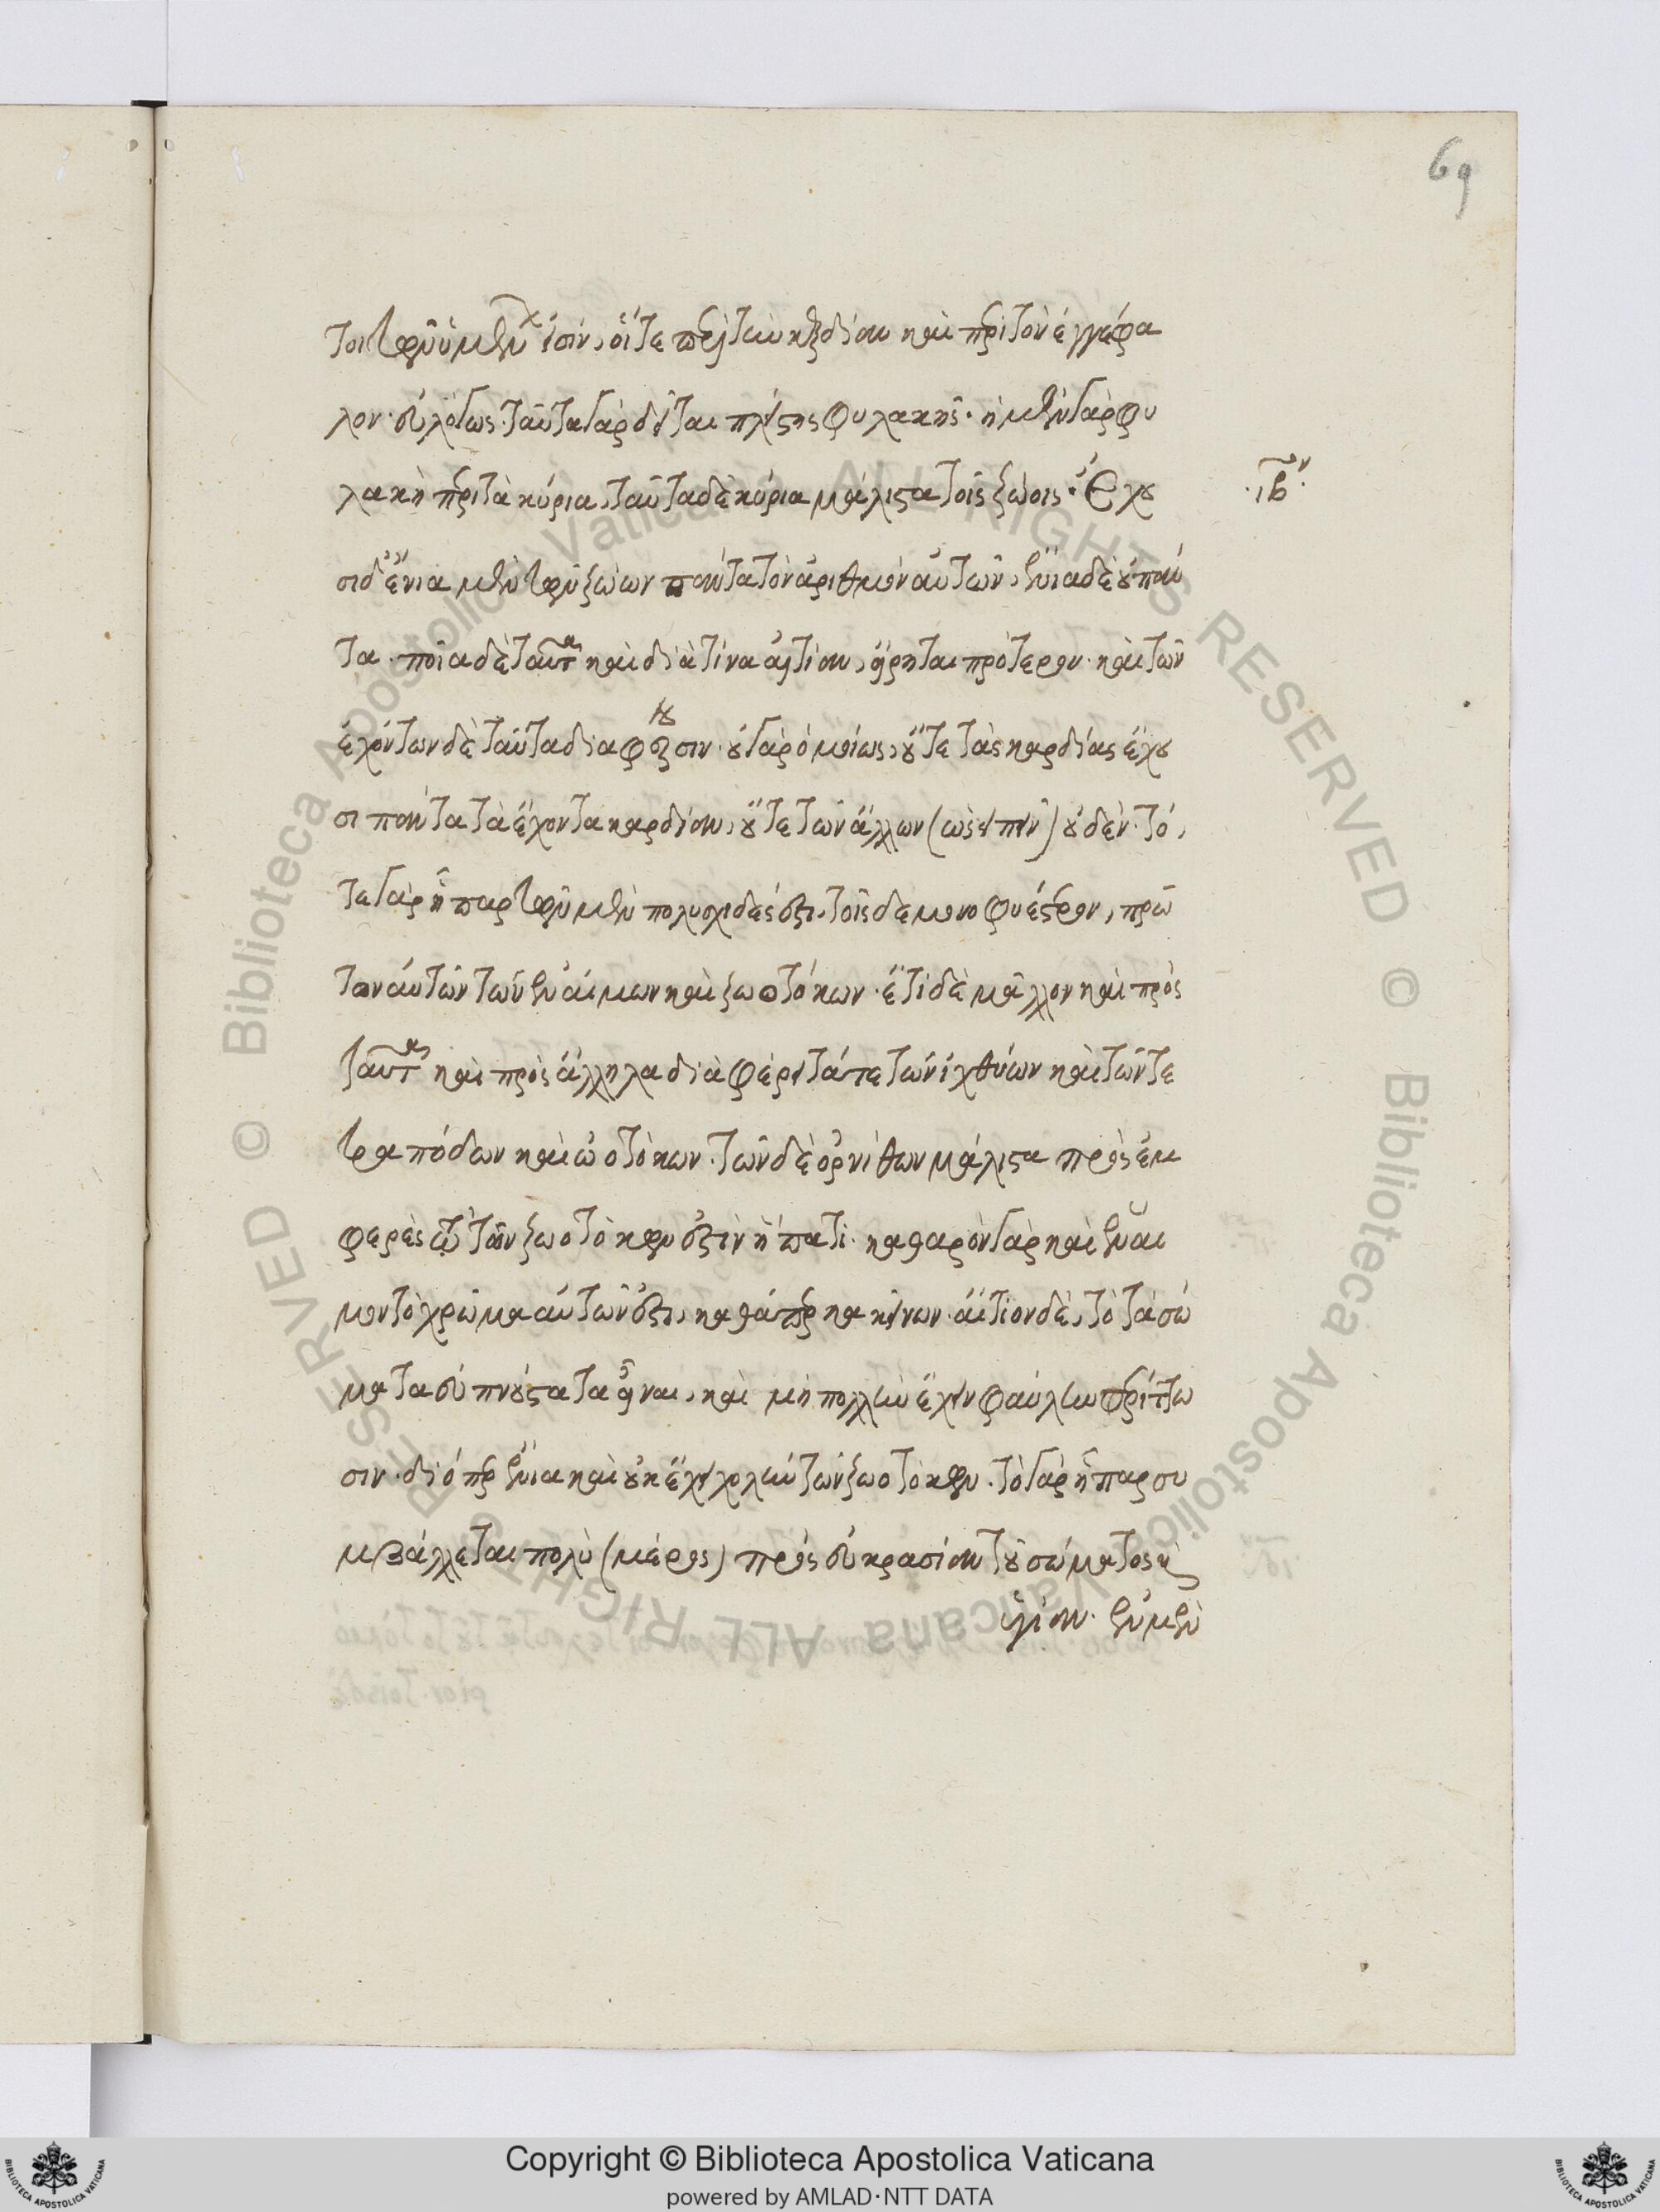 69
τοι τῶν ὑμένων εἰσίν, οἵ τε περὶ τὴν καρδίαν καὶ περὶ τὸν ἐγκέφα
λον· εὐλόγως· ταῦτα γὰρ δεῖται πλείστης φυλακῆς· ἡ μὲν γὰρ φυ
λακὴ περὶ τὰ κύρια, ταῦτα δὲ κύρια μάλιστα τοῖς ζώοις· Ἔχου
·ιβον·
σι δ' ἔνια μὲν τῶν ζώων πάντα τὸν ἀριθμὸν αὐτῶν, ἔνια δὲ οὐ πάν
τα· ποῖα δὲ ταῦτα καὶ διὰ τίνα αἰτίαν, εἴρηται πρότερον· καὶ τῶν
ἐχόντων δὲ ταῦτα διαφέρουσιν· οὐ γὰρ ὁμοίως, οὔτε τὰς καρδίας ἔχου
σι πάντα τὰ ἔχοντα καρδίαν, οὔτε τῶν ἄλλων (ὡς εἰπεῖν) οὐδέν· τό,
τε γὰρ ἧπαρ τῶν μὲν πολυσχιδές ἐστι, τοῖς δὲ μονοφυέστερον, πρῶ
τον αὐτῶν τῶν ἐναίμων καὶ ζωοτόκων· ἔτι δὲ μᾶλλον καὶ πρὸς
ταῦτα καὶ πρὸς ἄλληλα διαφέρει τά τε τῶν ἰχθύων καὶ τῶν τε
τραπόδων καὶ ὠοτόκων· τῶν δὲ ὀρνίθων μάλιστα προσεμ
φερὲς τῷ τῶν ζωοτόκων ἐστὶν ἥπατι· καθαρὸν γὰρ καὶ ἔναι
μον τὸ χρῶμα αὐτῶν ἐστι, καθάπερ κακείνων· αἴτιον δὲ, τὸ τὰ σώ
ματα εὐπνούστατα εἶναι, καὶ μὴ πολλὴν ἔχειν φαύλην περίττω
σιν· διόπερ ἔνια καὶ οὐκ ἔχει χολὴν τῶν ζωοτόκων· τὸ γὰρ ἧπαρ συ
μβάλλεται πολὺ (μέρος) πρὸς εὐκρασίαν τοῦ σώματος καὶ
ὑγίειαν· ἐν μὲν
Copyright © Biblioteca Apostolica Vaticana
powered by AMLAD·NTT DATA